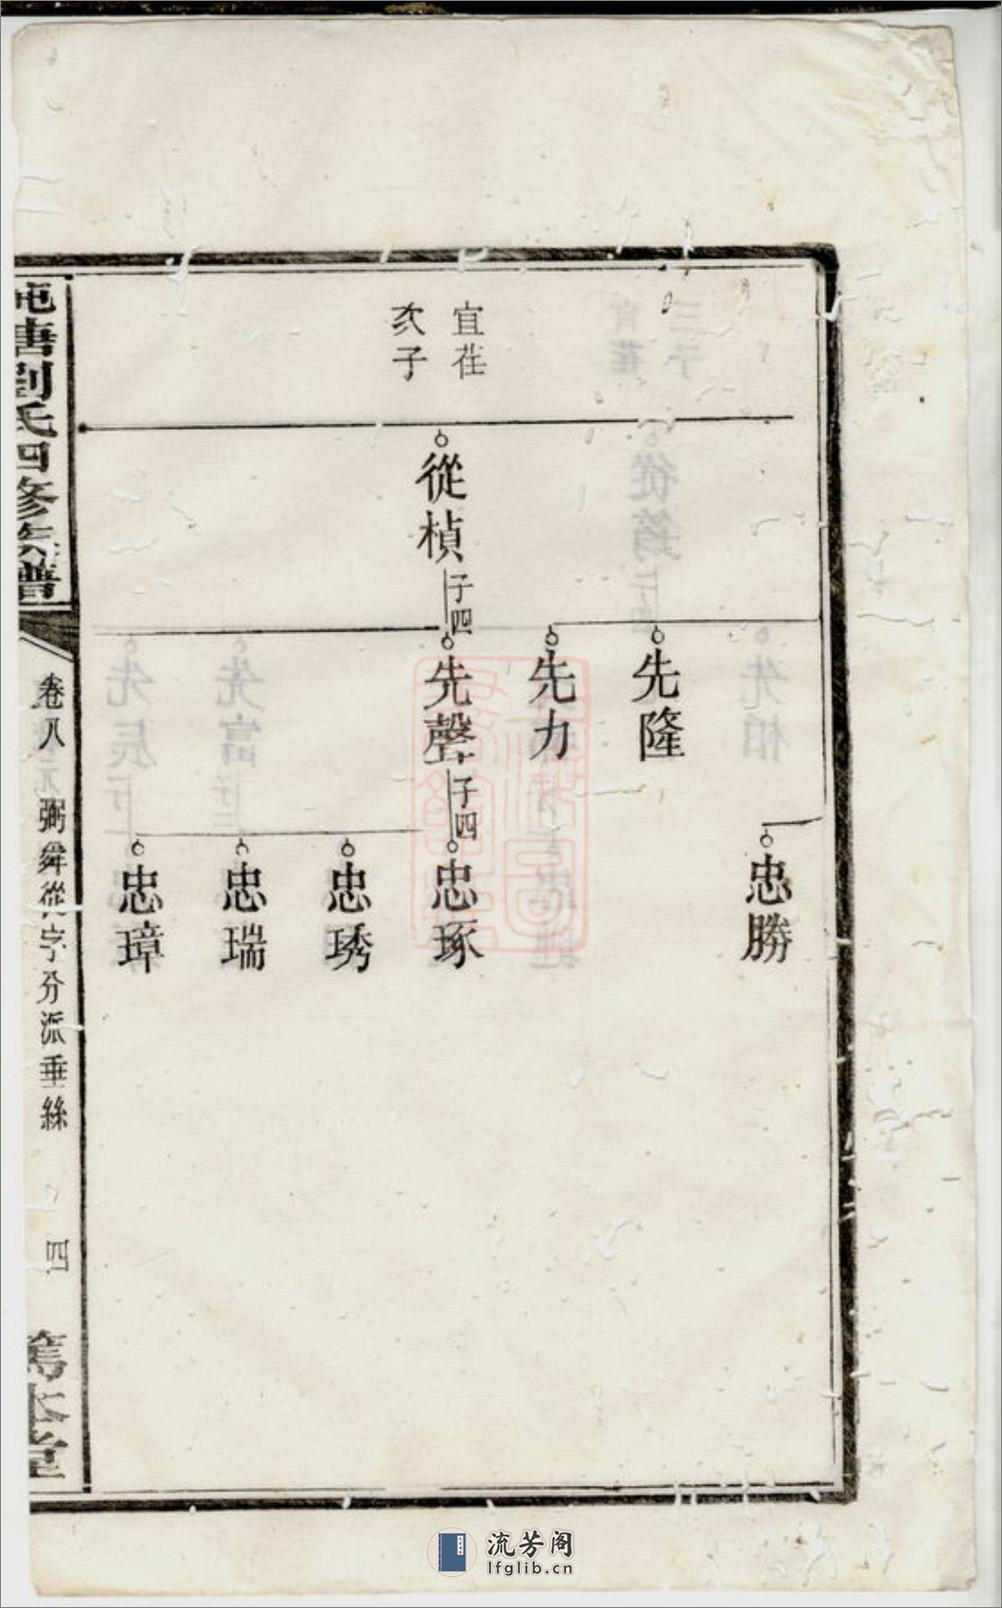 宜茌
次子
從楨
子四
先隆
先力
先聲
子四
忠勝
忠琢
忠琇
忠瑞
忠璋
唐劉氏四修族譜
卷八
弼舜從字分派垂絲
四
篤本堂
流芳阁
lfglib.cn